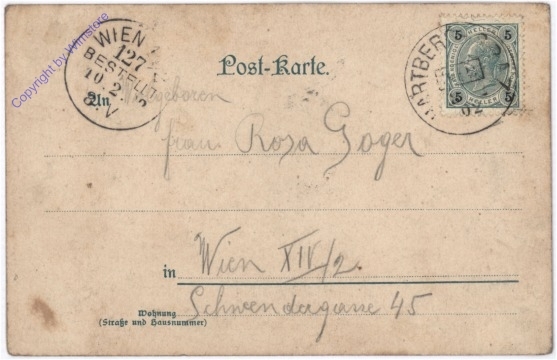 Copyright by Wnrnstore
WIEN
127
BESTELLT
10.2.
V
Post-Karte.
HARTBERG
02
5 5
HELLER
5 5
An
Wohlgeboren
frau Rosa Goger
in Wien XIV/2.
Schwendergasse 45
Wohnung
(Straße und Hausnummer)